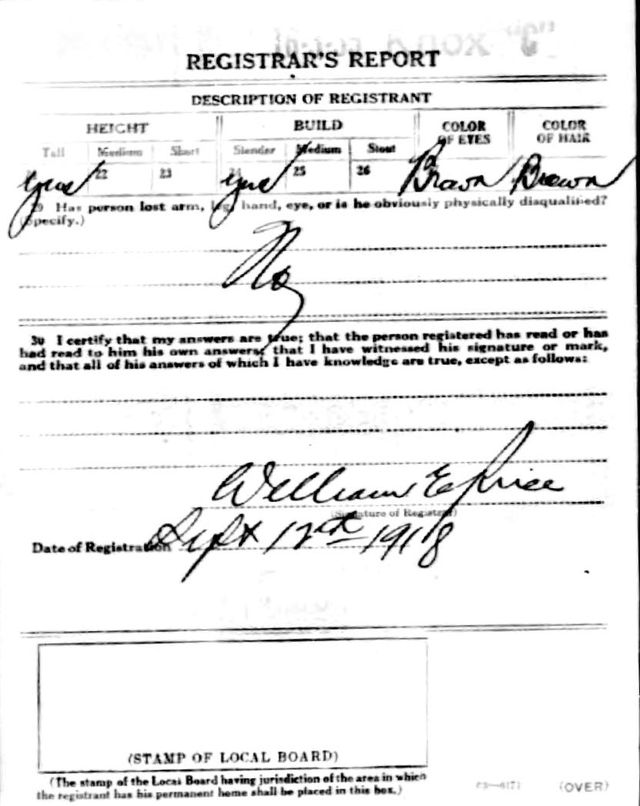 REGISTRAR'S REPORT
DESCRIPTION OF REGISTRANT
HEIGHT BUILD COLOR OF EYES COLOR OF HAIR
Tall Medium Short Slender Medium Stout
22 23 25 26
Brown Brown
29 Has person lost arm, leg, hand, eye, or is he obviously physically disqualified?
(Specify.)
No
30 I certify that my answers are true; that the person registered has read or has
had read to him his own answers; that I have witnessed his signature or mark,
and that all of his answers of which I have knowledge are true, except as follows:
William E
(Signature of Registrar)
Date of Registration Sept 12th 1918
(STAMP OF LOCAL BOARD)
(The stamp of the Local Board having jurisdiction of the area in which
the registrant has his permanent home shall be placed in this box.)
(OVER)